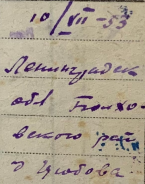 10/VII-53
Ленинградск
обл Волхо-
вского рай
д Цюбова